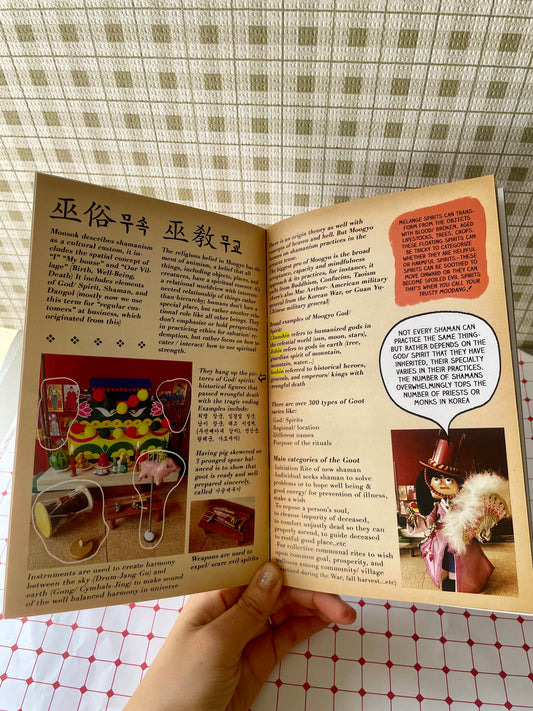 巫俗무속 巫敎무교
Moosok describes shamanism
as a cultural custom, it in-
cludes the spatial concept of
"I" "My house" and "Our Vil-
lage" (Birth, Well-Being,
Death) It includes elements
of God/ Spirit, Shaman, and
Dangol (mostly now we use
this term for "regular cus-
tomers" at business, which
originated from this)
The religious belief in Moogyo has the
most of animism, a belief that all
things, including objects, places, and
creatures have a spiritual essence and
a relational worldview with nature, in-
terconnected relationship of things rather
than hierarchy; humans don't have a
special place, but rather another rela-
tional role like all other beings. They
don't emphasize or hold perspective
in practicing ethics for salvation/ re-
demption, but rather focus on how to
cater / interact/ how to use spiritual
strength.
They hang up the pic-
tures of God/ spirits/
historical figures that
passed wrongful death
with the tragic ending
Examples include:
최영 장군, 임경업 장군,
Having pig skewered on
3 pronged spear bal-
anced is to show that
goot is ready and well
prepared sincerely,
called 사슬세우기
Instruments are used to create harmony
between the sky (Drum-Jang Gu) and
earth (Gong/ Cymbals-Jing) to make sound
of the well balanced harmony in universe
Weapons are used to
expel/ scare evil spirits
There is an origin theory as well with
legends of heaven and hell. But Moogyo
focuses on shamanism practices in the
broad tree of Moogyo.
The biggest pro of Moogyo is the broad
acceptance, capacity and mindfulness
approach & its practices, for instance, it
has from Buddhism, Confucius, Taoism
there's also Mac Arthur- American military
general from the Korean War, or Guan Yu-
Chinese military general)
Broad examples of Moogyo God/
Spirit:
refers to humanized gods in
the celestial world (sun, moon, stars),
refers to gods in earth (tree,
guardian spirit of mountain,
mountain, water...)
refered to historical heroes,
generals, and emperors/ kings with
wrongful death
There are over 300 types of Goot
varies like:
-God/ Spirits
-Regional/ location
-Different names
-Purpose of the rituals
Main categories of the Goot
-Initiation Rite of new shaman
-Individual seeks shaman to solve
problems or to hope well being &
good energy/ for prevention of illness,
make a wish
-To repose a person's soul,
to cleanse impurity of deceased,
to comfort unjustly dead so they can
properly ascend, to guide deceased
to restful good place..etc
-For collective communal rites to wish
upon common goal, prosperity, and
wellness among community/ village
during the War, fall harvest...etc)
MELANGE SPIRITS CAN TRANS-
FORM FROM THE OBJECTS
WITH BLOOD/ BROKEN, AGED
LIVESTOCKS, TREES, CROPS.
THESE FLOATING SPIRITS CAN
BE TRICKY TO CATEGORIZE
WHETHER THEY ARE HELPFUL
OR HARMFUL SPIRITS- THESE
SPIRITS CAN BE SOOTHED TO
MOVE ONWARD OR THEY CAN
BECOME SPOILED EVIL SPIRITS
THAT'S WHEN YOU CALL YOUR
TRUSTY MOODANG!
NOT EVERY SHAMAN CAN
PRACTICE THE SAME THING-
BUT RATHER DEPENDS ON THE
GOD/ SPIRIT THAT THEY HAVE
INHERITED, THEIR SPECIALTY
VARIES IN THEIR PRACTICES.
THE NUMBER OF SHAMANS
OVERWHELMINGLY TOPS THE
NUMBER OF PRIESTS OR
MONKS IN KOREA